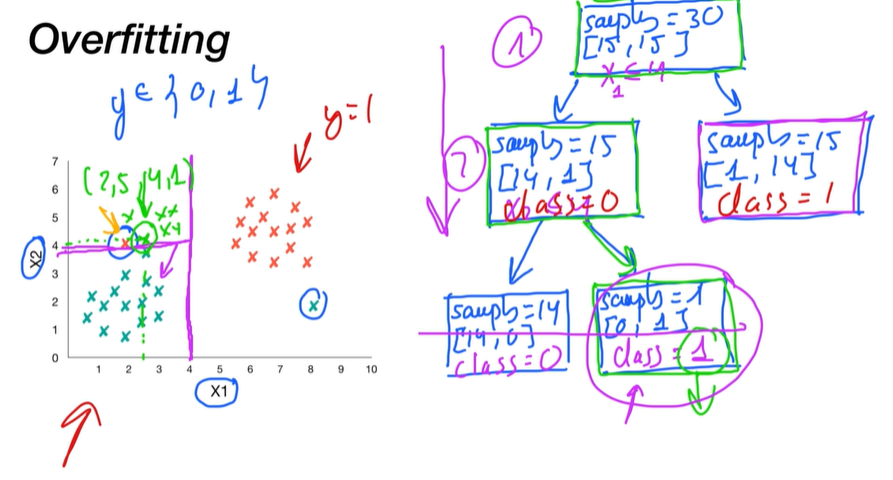 Overfitting
y ∈ {0,1}
y=1
(2,5 ; 4,1)
7
6
5
4
3
2
1
0
X2
1
2
3
4
5
6
7
8
9
10
X1
1
samples=30
[15,15]
x1 ≤ 4
2
samples=15
[14,1]
class=0
samples=15
[1,14]
class=1
samples=14
[14,0]
class=0
samples=1
[0,1]
class=1